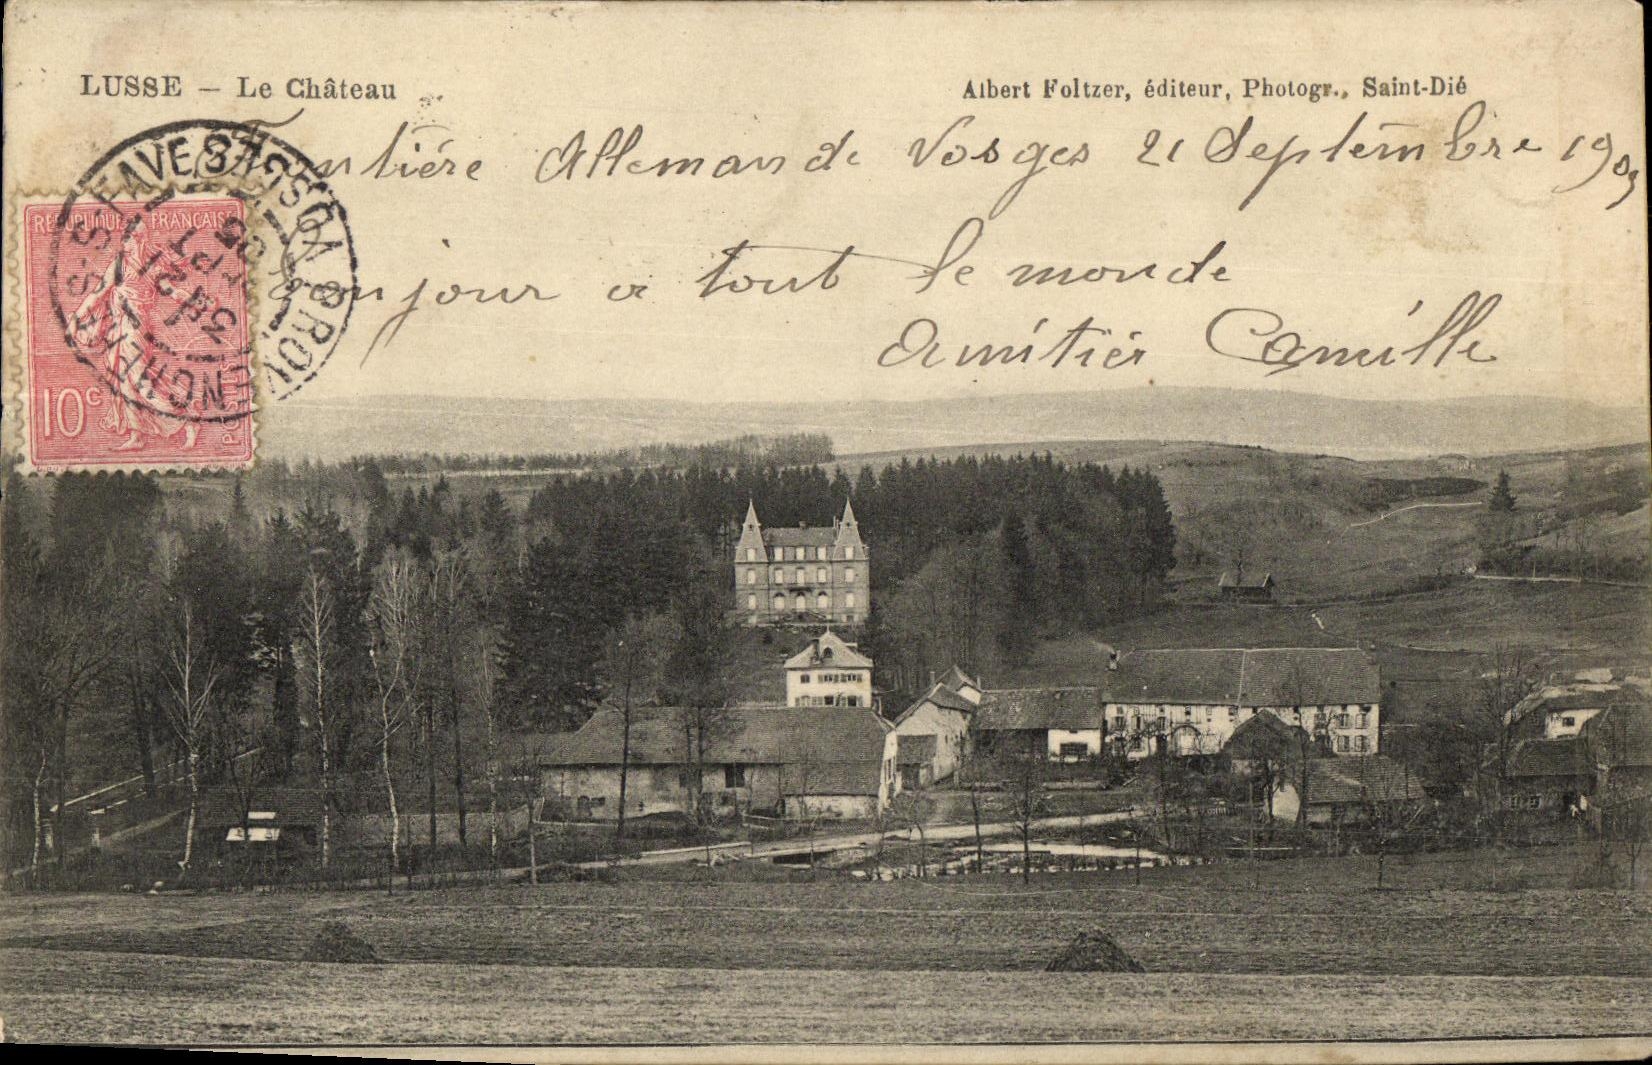 LUSSE — Le Château
Albert Foltzer, éditeur, Photogr., Saint-Dié
Frontiére Allemande Vosges 21 Septembre 1905
Bonjour a tout le monde
Amitiés Camille
REPUBLIQUE FRANÇAISE
10c
POSTES
PROVENCHERES-S-FAVE
VOSGES
21
SEPT
05